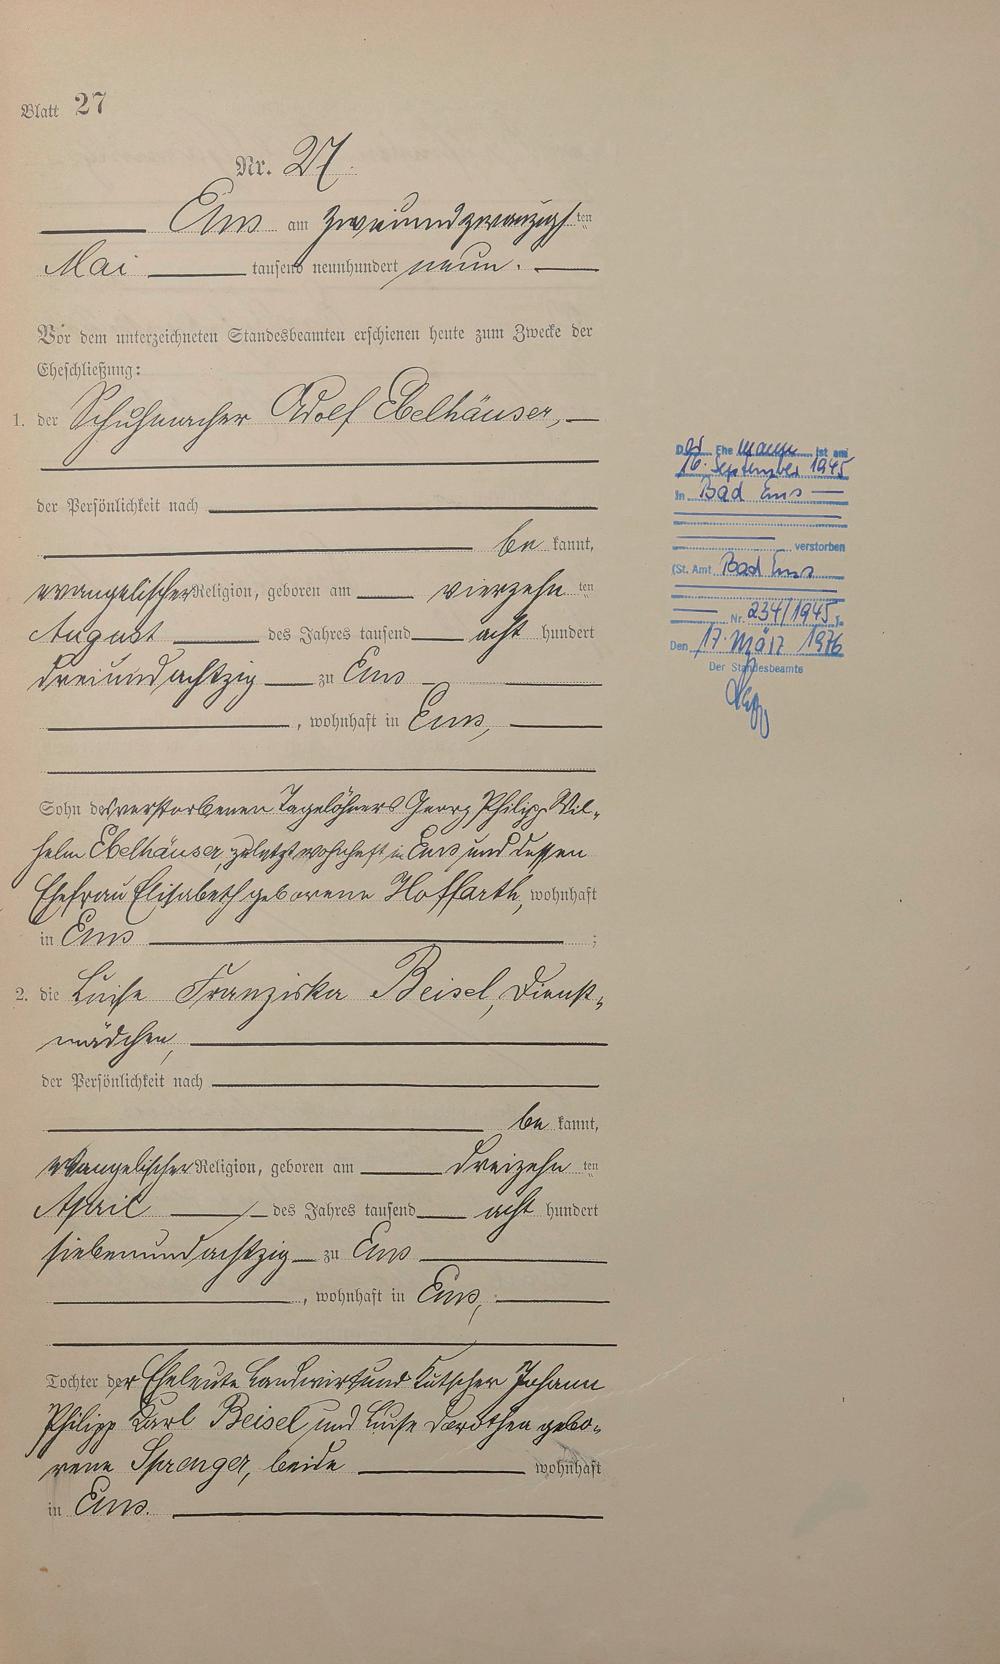 Blatt 27
Nr. 27.
Ems am zweiundzwanzigsten
Mai tausend neunhundert neun.
Vor dem unterzeichneten Standesbeamten erschienen heute zum Zwecke der
Eheschließung:
1. der Schuhmacher Adolf Ebelhäuser,
der Persönlichkeit nach
be kannt,
evangelischer Religion, geboren am vierzehn ten
August des Jahres tausend acht hundert
dreiundachtzig zu Ems
, wohnhaft in Ems,
Sohn des verstorbenen Tagelöhners Georg Philipp Wil-
helm Ebelhäuser, zuletzt wohnhaft in Ems und dessen
Ehefrau Elisabeth geborene Hoffarth, wohnhaft
in Ems ;
2. die Luise Franziska Beisel, Dienst-
mädchen,
der Persönlichkeit nach
be kannt,
evangelischer Religion, geboren am dreizehn ten
April des Jahres tausend acht hundert
siebenundachtzig zu Ems
, wohnhaft in Ems,
Tochter der Eheleute Landwirt und Kutscher Johann
Philipp Karl Beisel und Luise Dorothea gebo-
rene Sprenger, beide wohnhaft
in Ems.
Der Ehemann ist am
16. September 1945
in Bad Ems
verstorben
(St. Amt Bad Ems
Nr. 234/1945).
Den 17. März 1976
Der Standesbeamte